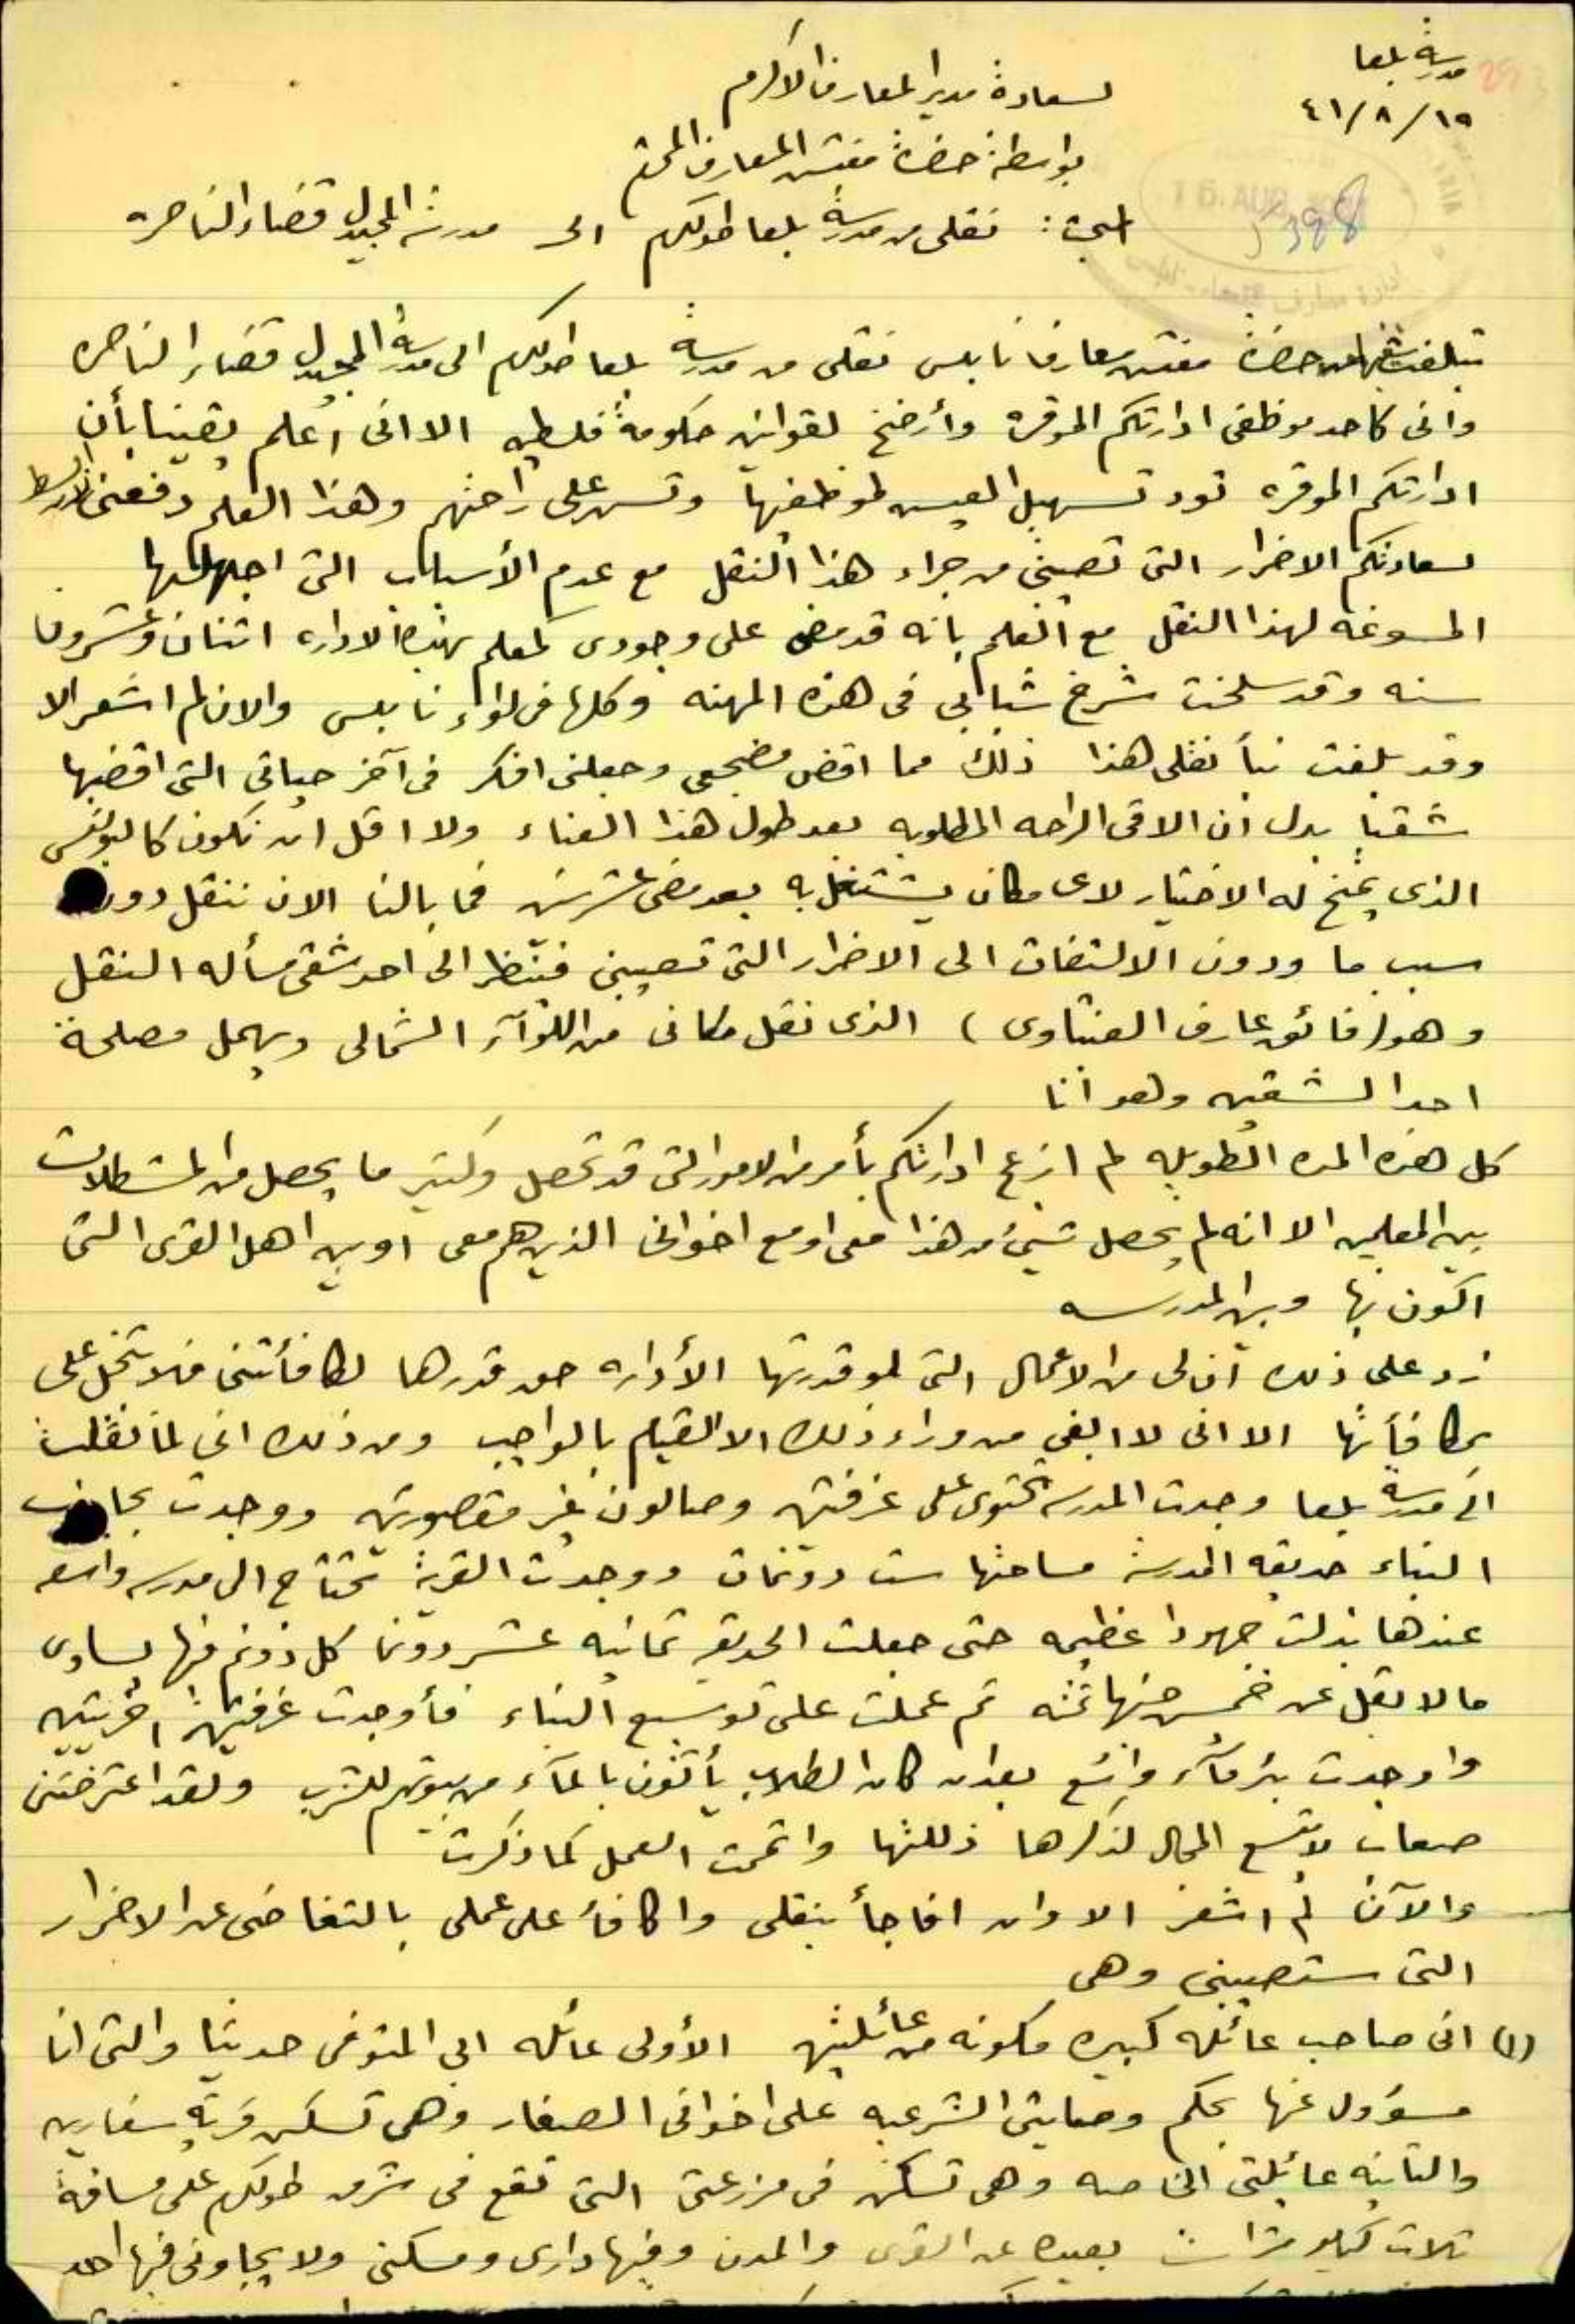 مدرسة بلعا
١٩/٨/٤١
لسعادة مدير المعارف الاكرم
بواسطة حضرة مفتش المعارف المحترم
16 AUG
398
المبحث: نقلي من مدرسة بلعا طولكرم الى مدرسة المجيدل قضاء الناصره
تبلغت من حضرة مفتش معارف نابلس نقلي من مدرسة بلعا طولكرم الى مدرسة المجيدل قضاء الناصره
واني كاحد موظفي ادارتكم الموقره وأرضخ لقوانين حكومة فلسطين الا اني اعلم يقينا بأن
ادارتكم الموقره تود تسهيل العيش لموظفيها وتسهر على راحتهم وهذا العلم دفعني لأبسط
لسعادتكم الاضرار التي تصيبني من جراء هذا النقل مع عدم الأسباب التي اجهلها
المسوغه لهذا النقل مع العلم بانه قد مضى على وجودي كمعلم بهذه الاداره اثنان وعشرون
سنه وقد سلخت شرخ شبابي في هذه المهنه وكلها في لواء نابلس والان لم اشعر الا
وقد بلغت نبأ نقلي هذا ذلك مما اقض مضجعي وجعلني افكر في آخر حياتي التي اقضيها
شقيا بدل ان الاقي الراحه المطلوبه بعد طول هذا العناء ولا اقل ان نكون كالبوليس
الذي يمنح له الاختيار لاي مكان يشتغل به بعد مضي عشر سنين فما بالنا الان ننقل دون
سبب ما ودون الالتفات الى الاضرار التي تصيبني فينظر الى احد شقي مسأله النقل
وهو (فائق عارف العنبتاوي) الذي نقل مكاني من اللواء الشمالي ويهمل مصلحة
احد الشقين وهو انا
كل هذه المده الطويله لم ازعج ادارتكم بأمر من الامور التي قد تحصل وكثير ما يحصل من المشكلات
بين المعلمين الا انه لم يحصل شيئ من هذا معي او مع اخواني الذين هم معي او بين اهل القرى التي
اكون بها وبين المدرسه
زد على ذلك ان لي من الاعمال التي لو قدرتها الأداره حق قدرها لكافأتني فلا تبخل علي
بمكافأتها الا اني لا ابغي من وراء ذلك الا القيام بالواجب ومن ذلك اني لما نقلت
الى مدرسة بلعا وجدت المدرسه تحتوي على غرفتين وصالون غير مقصورين ووجدت بجانب
البناء حديقه المدرسة مساحتها ست دونمات ووجدت القرية تحتاج الى مدرسه واسعه
عندها بذلت جهودا عظيمه حتى جعلت الحديقه ثمانيه عشر دونما كل دونم منها يساوي
ما لا يقل عن خمسين جنيها ثمنه ثم عملت على توسيع البناء فأوجدت غرفتين اخريتين
واوجدت بئر ماء واسع بعد ان كان الطلاب يأتون بالماء من بيوتهم للشرب ولقد اعترضتني
صعاب لا يتسع المجال لذكرها ذللتها واتممت العمل كما ذكرت
والآن لم اشعر الا وان افاجأ بنقلي واكافأ على عملي بالتغاضي عن الاضرار
التي ستصيبني وهي
(١) اني صاحب عائله كبيره مكونه من عائلتين الأولى عائله ابي المتوفى حديثا والتي انا
مسؤول عنها بحكم وصايتي الشرعيه على اخواني الصغار وهي تسكن قرية سفارين
والثانيه عائلتي الخاصه وهي تسكن في مزرعتي التي تقع في شرق طولكرم على مسافة
ثلاث كيلو مترات بعيده عن القرى والمدن وفيها داري ومسكني ولا يجاورني فيها احد